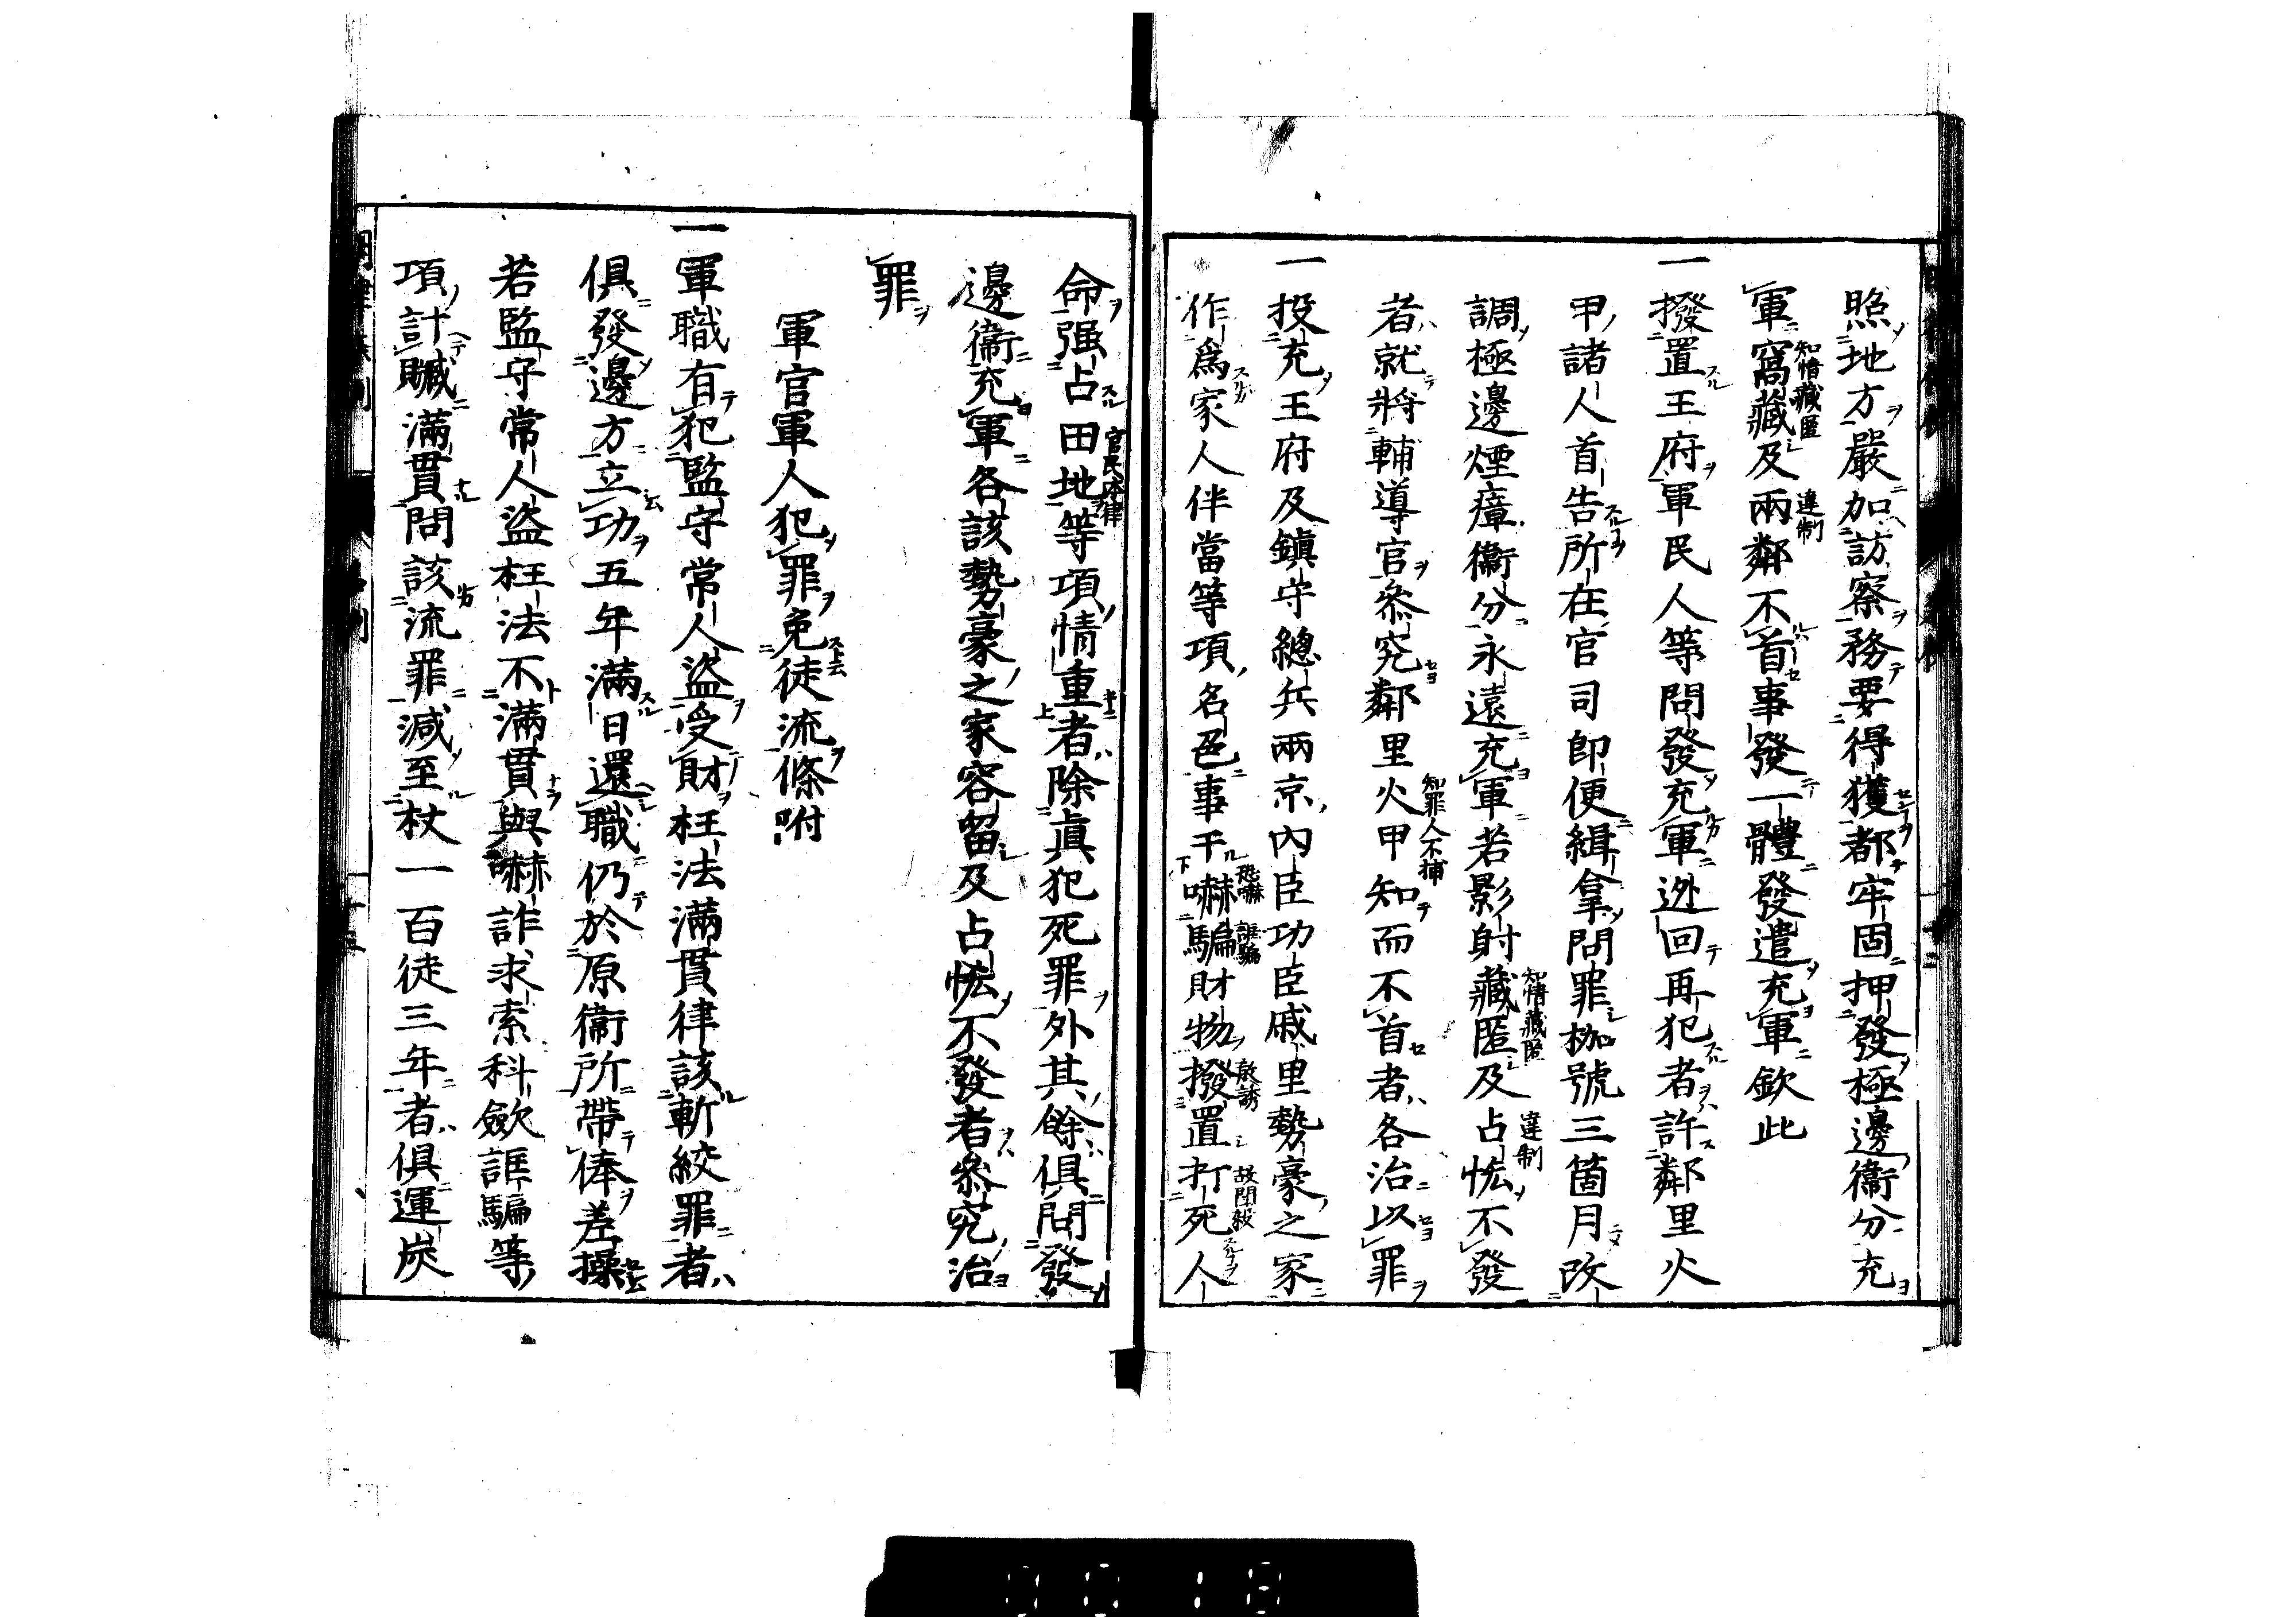 照地方嚴加訪察務要得獲都牢固押發極邊衞分充
軍窩藏及兩鄰不首事發一體發遣充軍欽此
知情藏匿
違制
一撥置王府軍民人等問發充軍迯回再犯者許鄰里火
甲諸人首告所在官司卽便緝拿問罪枷號三箇月改
調極邊煙瘴衞分永遠充軍若影射藏匿及占恡不發
知情藏匿
違制
者就將輔導官參究鄰里火甲知而不首者各治以罪
知罪人不捕
一投充王府及鎭守總兵兩京內臣功臣戚里勢豪之家
作爲家人伴當等項名色事干嚇騙財物撥置打死人
恐嚇
誆騙
故鬪殺
命强占田地等項情重者除眞犯死罪外其餘俱問發
官民本律
邊衞充軍各該勢豪之家容留及占恡不發者參究治
罪
軍官軍人犯罪免徒流條附
一軍職有犯監守常人盜受財枉法滿貫律該斬絞罪者
俱發邊方立功五年滿日還職仍於原衞所帶俸差操
若監守常人盜枉法不滿貫與嚇詐求索科斂誆騙等
項計贓滿貫問該流罪減至杖一百徒三年者俱運炭